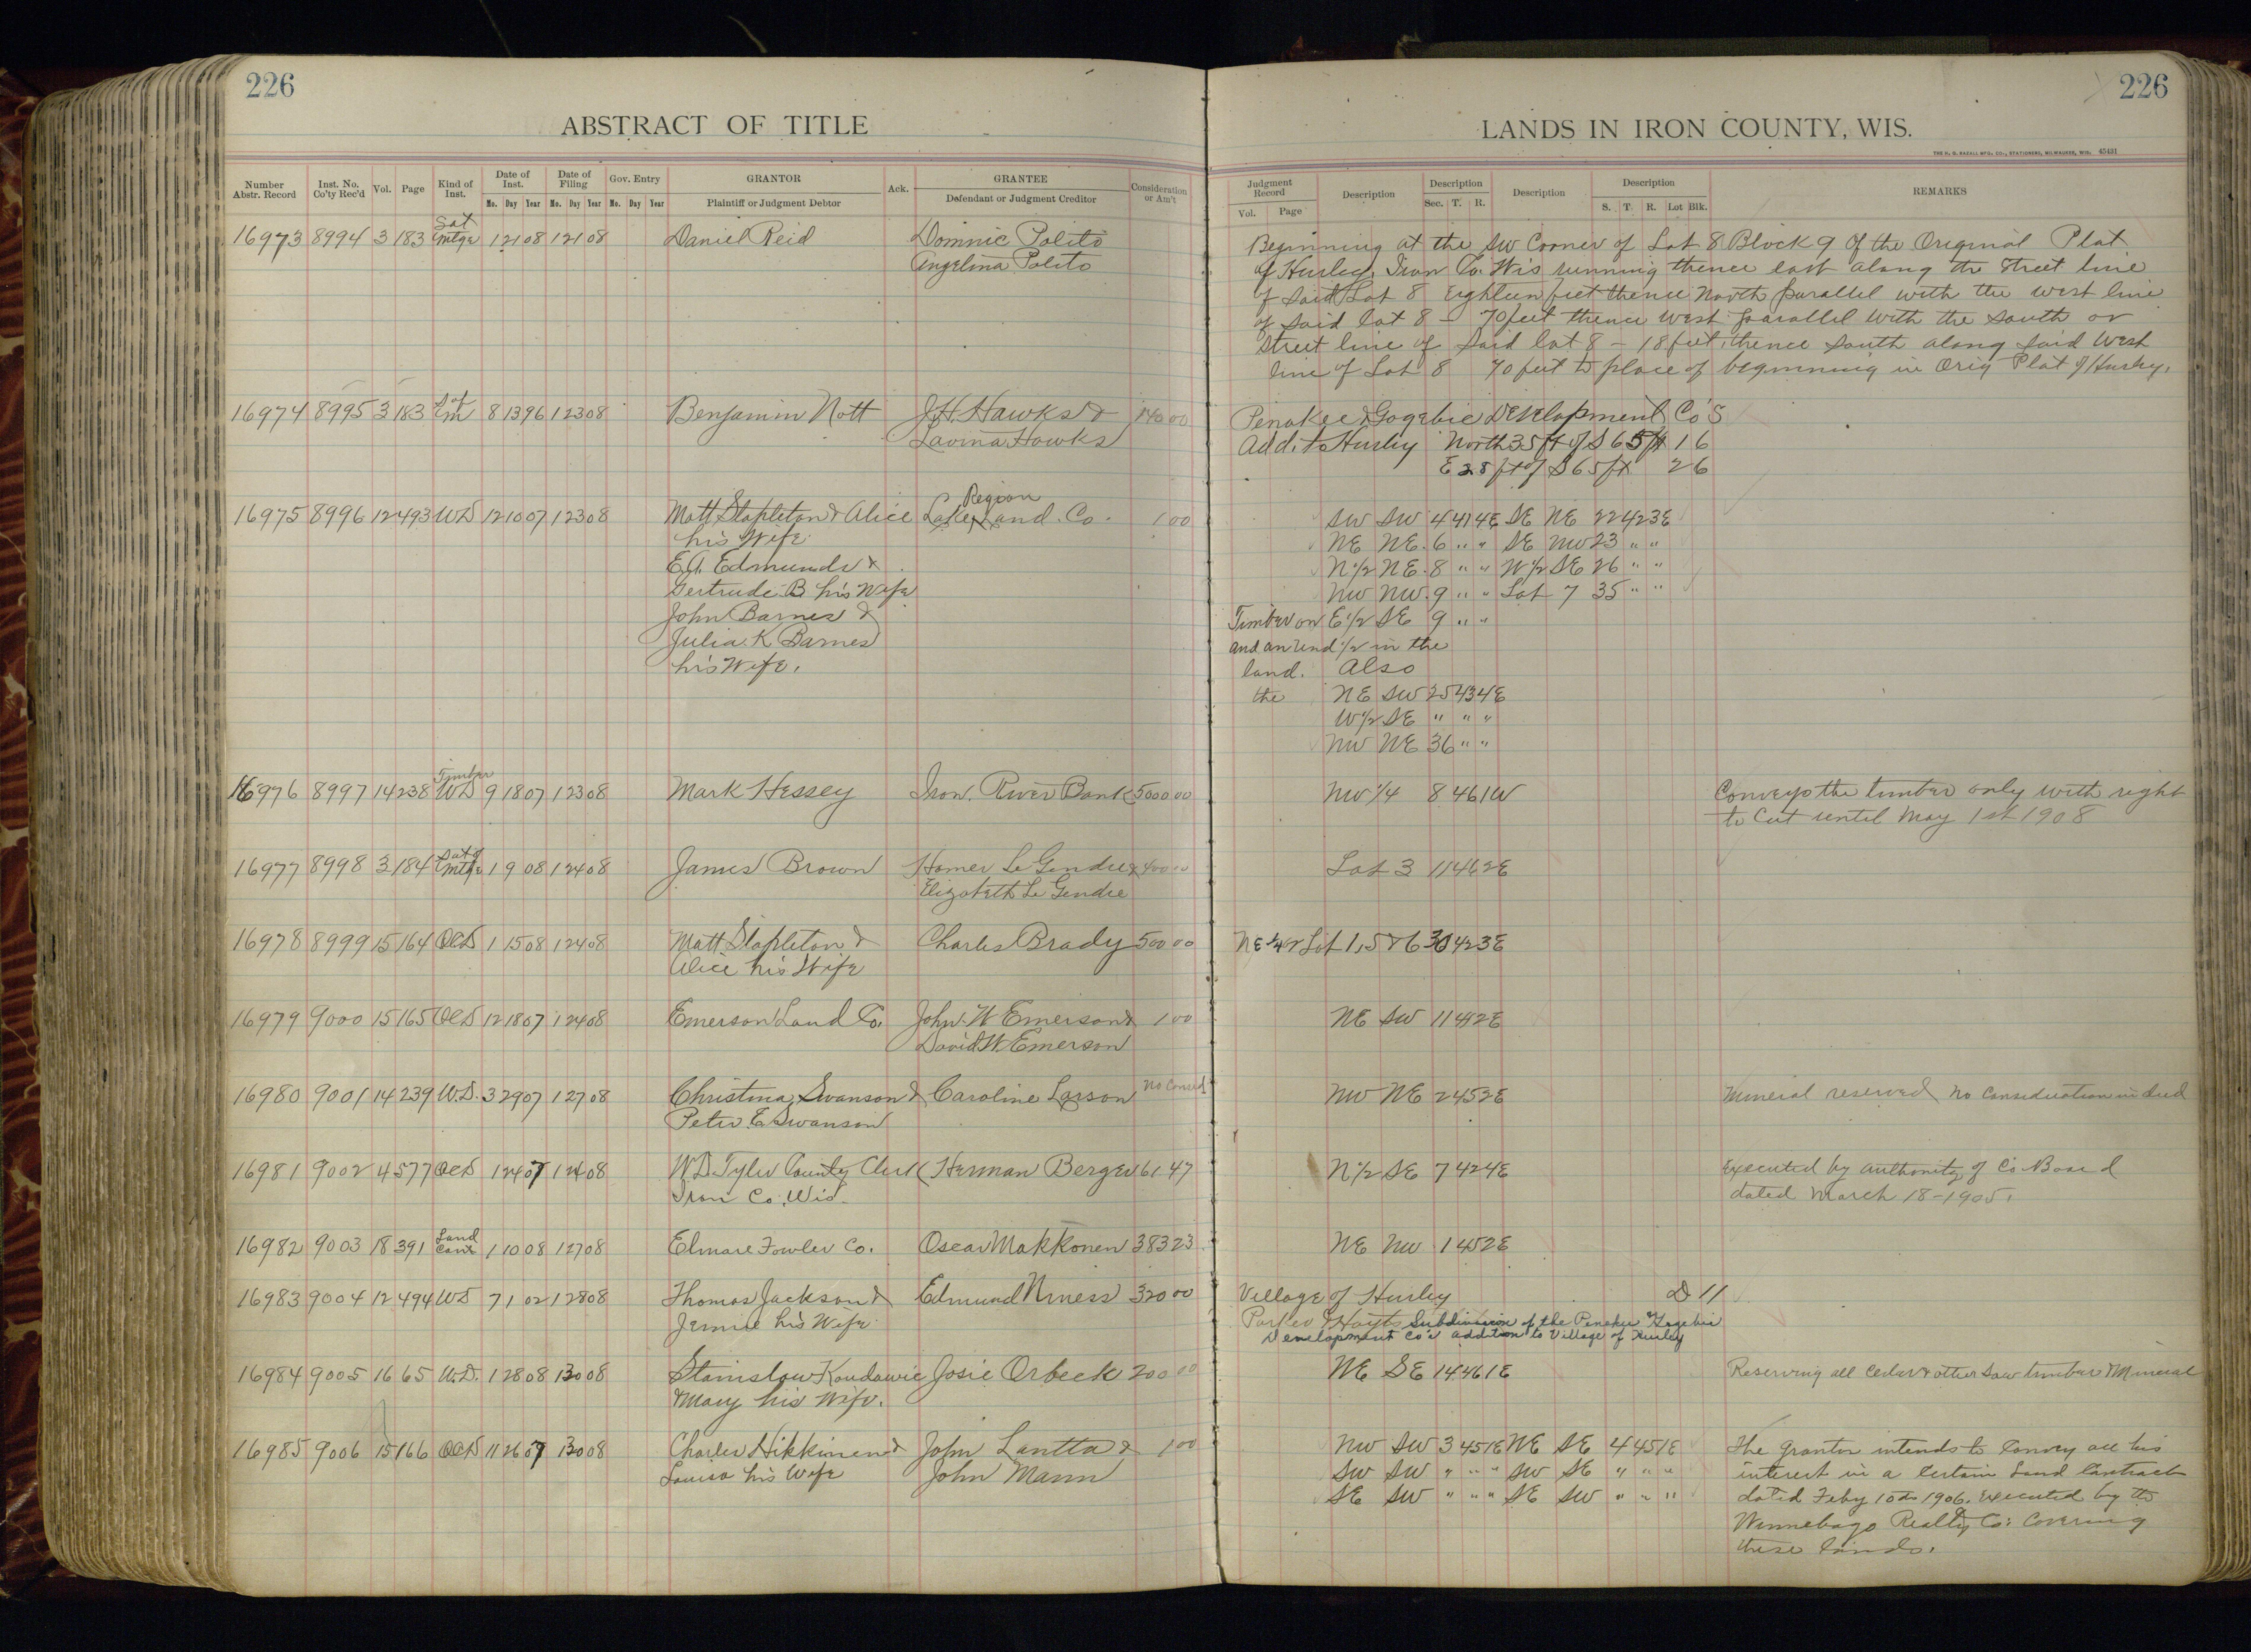 226
ABSTRACT OF TITLE
Number Abstr. Record Inst. No. Co'ty Rec'd Vol. Page Kind of Inst. Date of Inst. Mo. Day Year Date of Filing Mo. Day Year Gov. Entry Mo. Day Year GRANTOR Plaintiff or Judgment Debtor Ack. GRANTEE Defendant or Judgment Creditor Consideration or Am't
16973 8994 3 183 Sat Mtge 1 21 08 1 21 08 Daniel Reid Dominic Polito
Angelina Polito
16974 8995 3 183 Sat of M 8 13 96 1 23 08 Benjamin Nott J.H. Hawks & 140 00
Lavina Hawks
16975 8996 12 493 WD 12 10 07 1 23 08 Matt Stapleton & Alice Lake Region Land Co. 1 00
his Wife
E.A. Edmunds &
Gertrude B his Wife
John Barnes &
Julia K Barnes
his Wife.
16976 8997 14 238 Timber WD 9 18 07 1 23 08 Mark Hessey Iron River Bank 5000 00
16977 8998 3 184 Sat of Mtge 1 9 08 1 24 08 James Brown Homer Le Gendre & 400 00
Elizabeth Le Gendre
16978 8999 15 164 QCD 1 15 08 1 24 08 Matt Stapleton & Charles Brady 500 00
Alice his Wife
16979 9000 15 165 QCD 12 18 07 1 24 08 Emerson Land Co. John W Emerson & 1 00
David W. Emerson
16980 9001 14 239 W.D. 3 29 07 1 27 08 Christina Swanson & Caroline Larson No Consid
Peter E Swanson
16981 9002 4 577 QCD 1 24 07 1 24 08 W.D. Tyler County Clerk Herman Berger 61 47
Iron Co. Wis.
16982 9003 18 391 Land Cont 1 10 08 1 27 08 Elmare Fowler Co. Oscar Makkonen 383 23
16983 9004 12 494 WD 7 1 02 1 28 08 Thomas Jackson & Edmund Niness 320 00
Jennie his Wife
16984 9005 16 65 W.D. 1 28 08 1 30 08 Stanislow Kondawic Josie Orbeck 200 00
& Mary his Wife.
16985 9006 15 166 QCD 11 26 07 1 30 08 Charles Hikkinen & John Lantta & 1 00
Louisa his Wife John Mann
226
LANDS IN IRON COUNTY, WIS.
THE H. H. RAZALL MFG. CO., STATIONERS, MILWAUKEE, WIS. 45431
Judgment Record Vol. Page Description Description Sec. T. R. Description Description S. T. R. Lot Blk. REMARKS
Beginning at the SW Corner of Lot 8 Block 9 Of the Original Plat
of Hurley, Iron Co. Wis running thence east along the Street line
of said Lot 8 Eighteen feet thence North parallel with the west line
of said lot 8 - 70 feet thence West parallel with the South or
Street line of said lot 8 - 18 feet, thence South along said West
line of Lot 8 70 feet to place of beginning in Orig Plat of Hurley.
Penokee & Gogebic Development Co's
Add. to Hurley North 35 ft of S 65 ft 1 6
E 28 ft of S 65 ft 2 6
SW SW 4 41 4E SE NE 22 42 3E
NE NE 6 " " SE NW 23 " "
N 1/2 NE 8 " " W 1/2 SE 26 " "
NW NW 9 " " Lot 7 35 " "
Timber on E 1/2 SE 9 " "
and an und 1/2 in the
land. Also
the NE SW 25 43 4E
W 1/2 SE " " "
NW NE 36 " "
NW 1/4 8 46 1W Conveys the timber only with right
to Cut until May 1st 1908
Lot 3 11 46 2E
NE 1/4 & Lot 1, 5 & 6 30 42 3E
NE SW 11 44 2E
NW NE 24 45 2E Mineral reserved No Consideration in deed
N 1/2 SE 7 42 4E Executed by authority of Co Board
dated March 18 - 1905.
NE NW 1 45 2E
Village of Hurley D 11
Parker & Hoyts Subdivision of the Penokee & Gogebic
Development Co's addition to Village of Hurley
NE SE 14 46 1E Reserving all Cedar & other Saw timber & Mineral
NW SW 3 45 1E NE SE 4 45 1E The grantor intends to Convey all his
SW SW " " " SW SE " " " interest in a Certain Land Contract
SE SW " " " SE SW " " " dated Feby 10th 1906. Executed by the
Winnebago Realty Co: Covering
these lands.